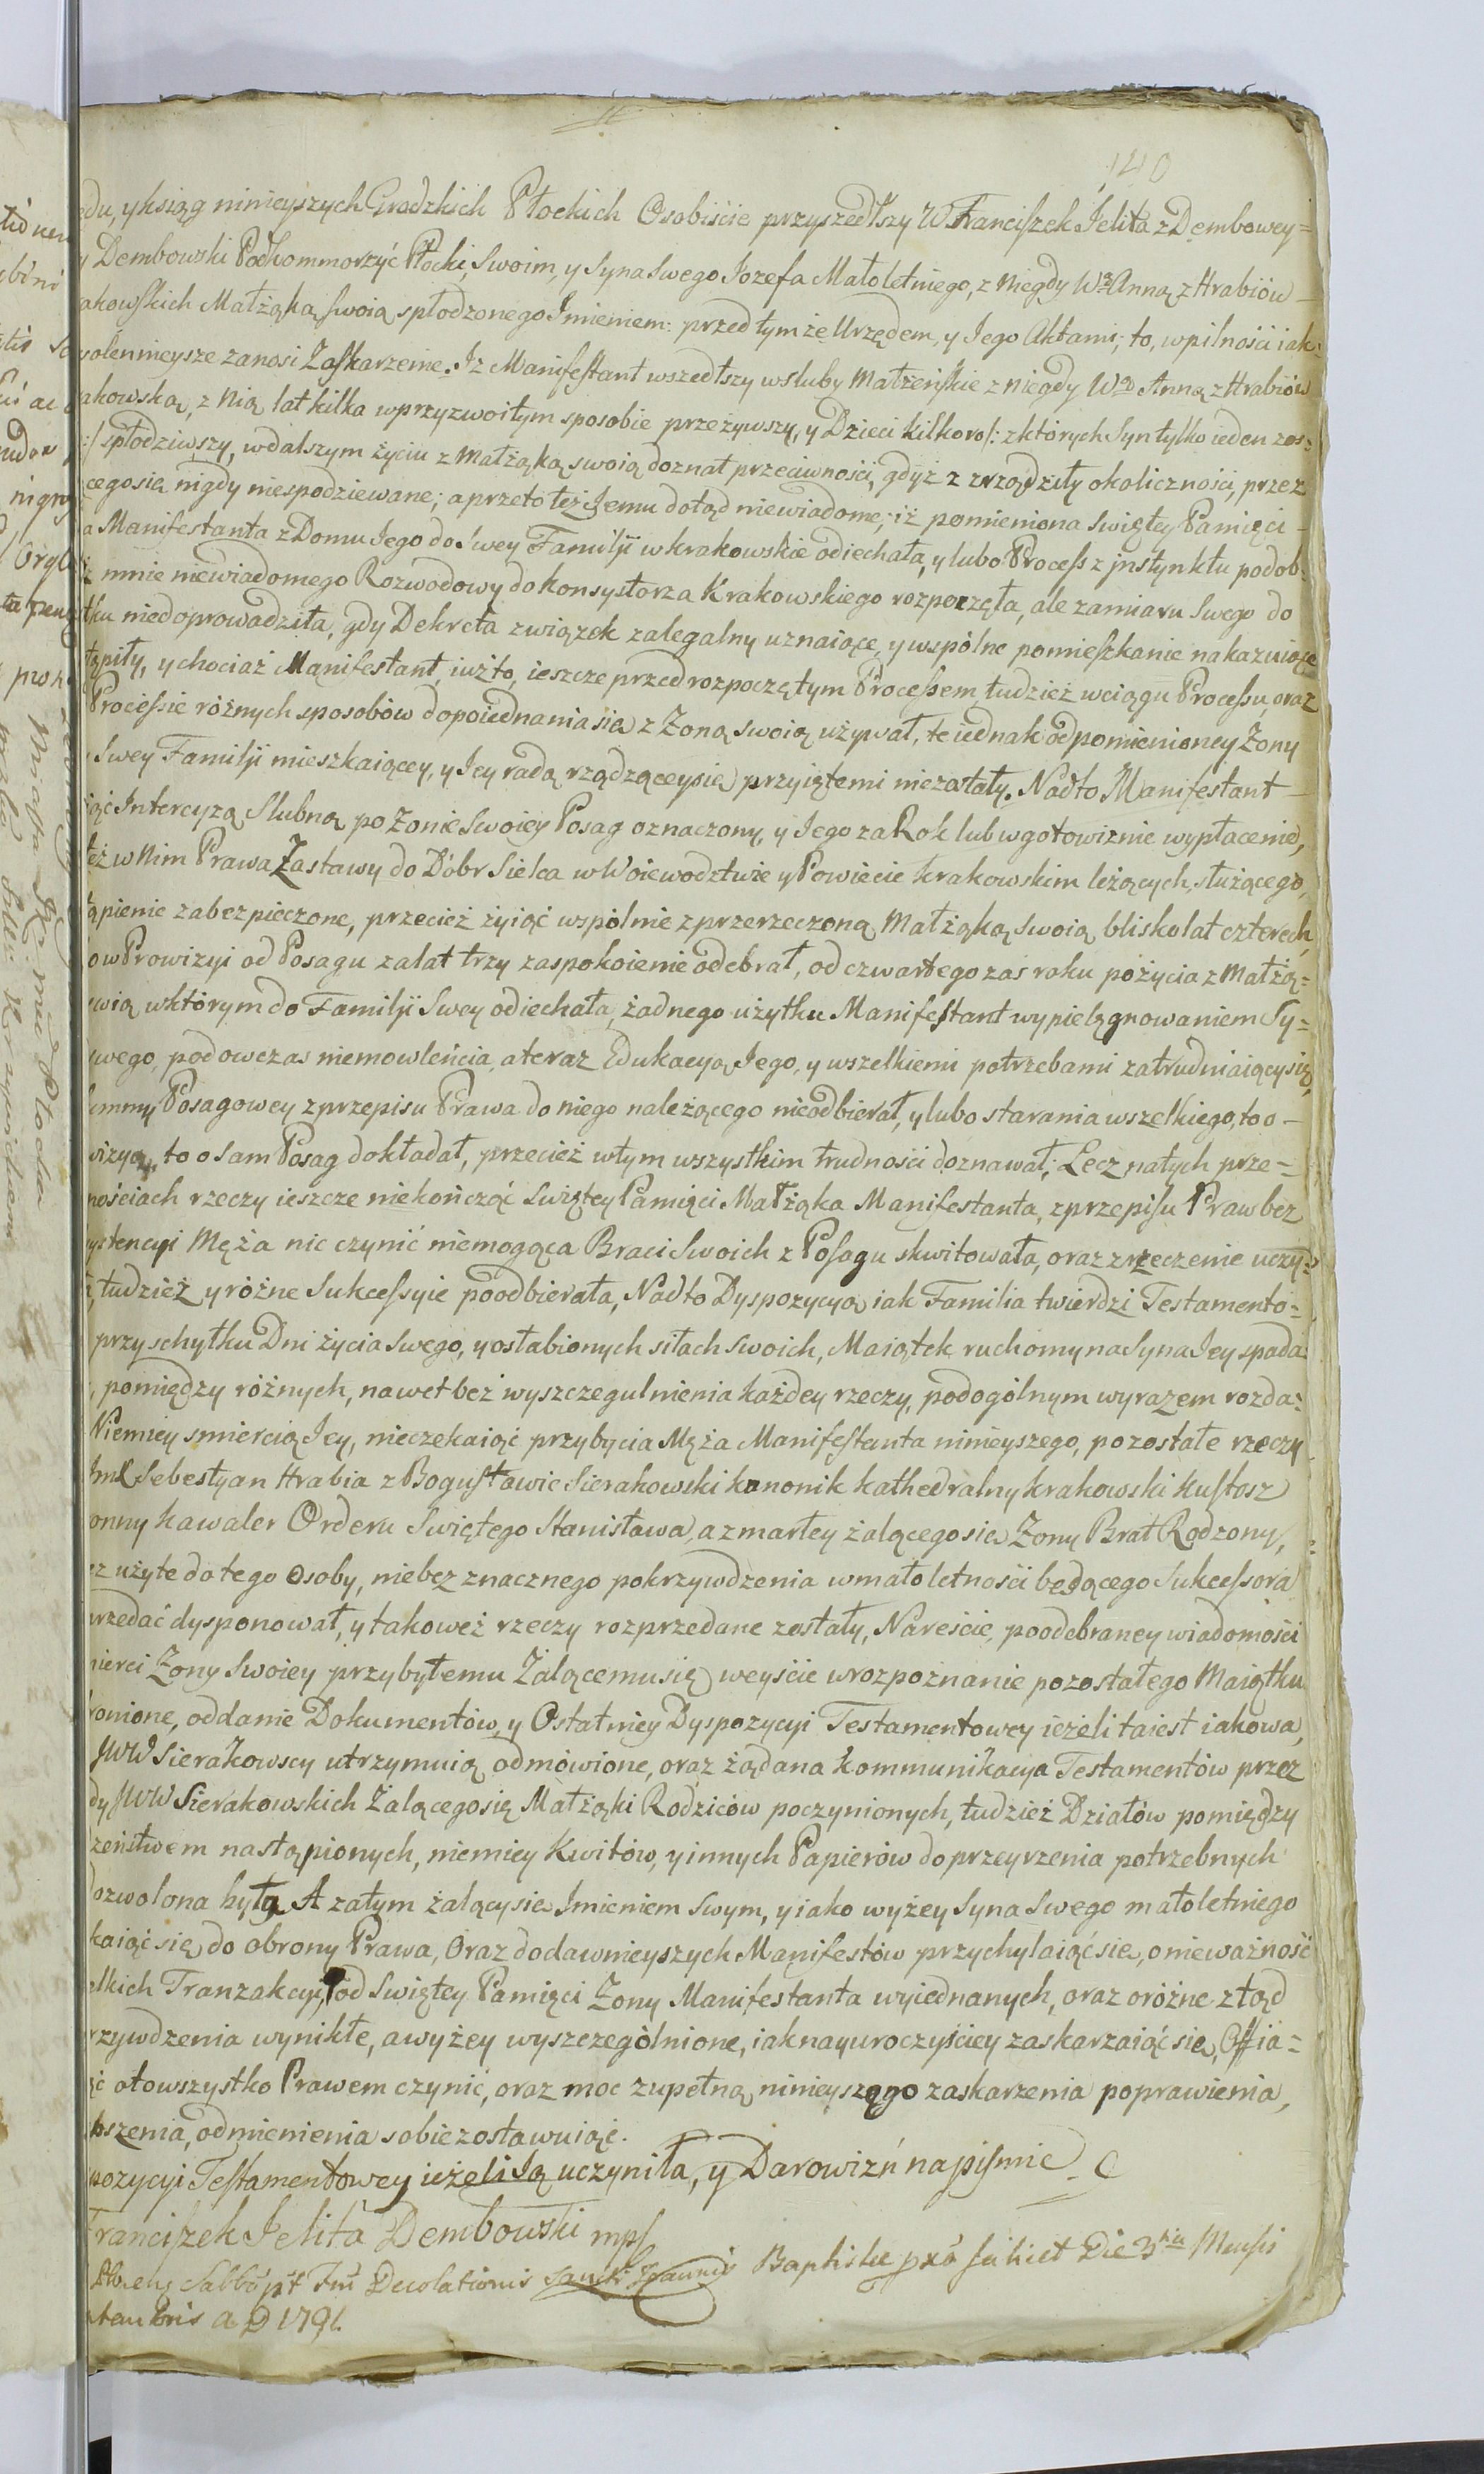 140
edu, y ksiąg ninieyszych Grodzkich Płockich Osobiście przyszedłszy W. Franciſzek Jelita z Dembowey=
y Dembowski Podkommorzyć Płocki, Swoim, y Syna Swego Jozefa Małoletniego, z Niegdy Wą Anną z Hrabiów
akowſkich Małżąką ſwoią spłodzonego Jmieniem: przed tymże Urzędem, y Jego Aktami; to, w pilności iak=
wolennieysze zanosi Zaſkarzenie. Iż Manifeſtant wszedłszy w sluby Małżeńſkie z niegdy Wą Anną z Hrabiów
akowską, z Nią lat kilka w przyzwoitym sposobie przeżywszy, y Dzieci kilkoro /: z których Syn tylko ieden zos=
:/ spłodziwszy, w dalszym życiu z Małżąką swoią doznał przeciwności, gdyż z zrządziły okoliczności, przez
cego sie nigdy niespodziewane; a przeto też Jemu dotąd niewiadome; iż pomieniona Swiętey Pamięci
a Manifestanta z Domu Jego do Swey Familji w krakowskie odiechała, y lubo Proceſs z jnstynktu podob=
ż mnie niewiadomego Rozwodowy do Konsystorza Krakowskiego rozpoczęła, ale zamiaru Swego do
tku niedoprowadziła, gdy Dekreta związek za legalny uznaiące, y wspólne pomieſzkanie nakazuiące
tąpiły, y chociaż Manifestant, iuż to, ieszcze przed rozpoczętym Proceſsem, tudzież w ciągu Proceſsu, oraz
Proceſsie różnych sposobów do poiednania sie z Zoną swoią używał, te iednak od pomienioney Żony
Swey Familji mieszkaiącey, y Jey radą rządząceysie przyiętemi niezostały. Nadto Manifestant
iąć Intercyzą Slubną po Zonie Swoiey Posag oznaczony, y Jego za Rok lub w gotowiznie wypłacenie,
też w Nim Prawa Zastawy do Dóbr Sielca w Woiewodztwie y Powiecie Krakowskim leżących, służącego,
tąpienie zabezpieczone, przecież żyiąć wspólnie z przerzeczoną Małżąką Swoią blisko lat czterech,
ow Prowizyi od Posagu za lat trzy zaspokoienie odebrał, od czwartego zaś roku pożycia z Małżą=
wią w którym do Familji Swey odiechała, żadnego użytku Manifeſtant wypielęgnowaniem Sy=
wego, podowczas niemowlęńcia, a teraz Edukacyą Jego, y wszelkiemi potrzebami zatrudniaiący się,
ummy Posagowey z przepisu Prawa do niego należącego nieodbierał, y lubo starania wszelkiego, to o
wizyą, to o sam Posag dokładał, przecież w tym wszystkim trudności doznawał; Lecz na tych prze=
nościach rzeczy ieszcze niekończąć Swiętey Pamięci Małżąka Manifestanta, z przepiſu Praw bez
ystencyi Męża nic czynić niemogąca Braci Swoich z Poſagu skwitowała, oraz zrzeczenie uczy=
i, tudzież y różne Sukceſsyie poodbierała, Nadto Dyspozycyą iak Familia twierdzi Testamento=
przy schyłku Dni życia Swego, y osłabionych siłach Swoich, Maiątek ruchomy na Syna Jey spada=
, pomiędzy różnych, nawet bez wyszczegulnienia każdey rzeczy, pod ogólnym wyrazem rozda=
Niemiey smiercią Jey, nieczekaiąć przybycia Męża Manifeſtanta ninieyszego, pozostałe rzeczy
JmX Sebestyan Hrabia z Boguſławic Sierakowski kanonik kathedralny krakowski kuſtosz
onny kawaler Orderu Swiętego Stanisława, a zmarłey żalącego sie Zony Brat Rodzony,
ez użyte do tego Osoby, nie bez znacznego pokrzywdzenia w małoletności będącego Sukceſsora
przedać dysponował, y takoweż rzeczy rozprzedane zostały, Nareście, po odebraney wiadomości
mierci Zony Swoiey przybyłemu Zalącemu się weyście w rozpoznanie pozostałego Maiątku
ronione, oddanie Dokumentów, y Ostatniey Dyspozycyi Testamentowey ieżeli ta iest iakowa,
JWW Sierakowscy utrzymuią, odmówione, oraz żądana kommunikacya Testamentów przez
dy JWW Sierakowskich Zalącego się Małżąki Rodziców poczynionych, tudzież Działów pomiędzy
zeństwem nastąpionych, niemiey Kwitów, y innych Papierów do przeyrzenia potrzebnych
dozwolona była. A zatym żalący sie Jmieniem Swym, y iako wyżey Syna Swego małoletniego
kaiąć się do obrony Prawa, Oraz do dawnieyszych Manifestów przychylaiąć sie, o nieważność
elkich Tranzakcyi, od Swiętey Pamięci Żony Manifestanta wyiednanych, oraz o różne ztąd
rzywdzenia wynikłe, a wyżey wyszczególnione, iaknayuroczyściey zaskarzaiąć sie, Offia=
ąć o to wszystko Prawem czynić, oraz moc zupełną ninieyszego zaskarzenia poprawienia,
kszenia, odmienienia sobie zostawuiąć.
pozycyi Teſtamentowey ieżeli Ją uczyniła, y Darowizń na piſmie
Franciſzek Jelita Dembowski mps
Sabbo pt Fm Decolationis Sancti Joannis Baptistæ pxo Die 3tia Mensis
tembris A D 1791.